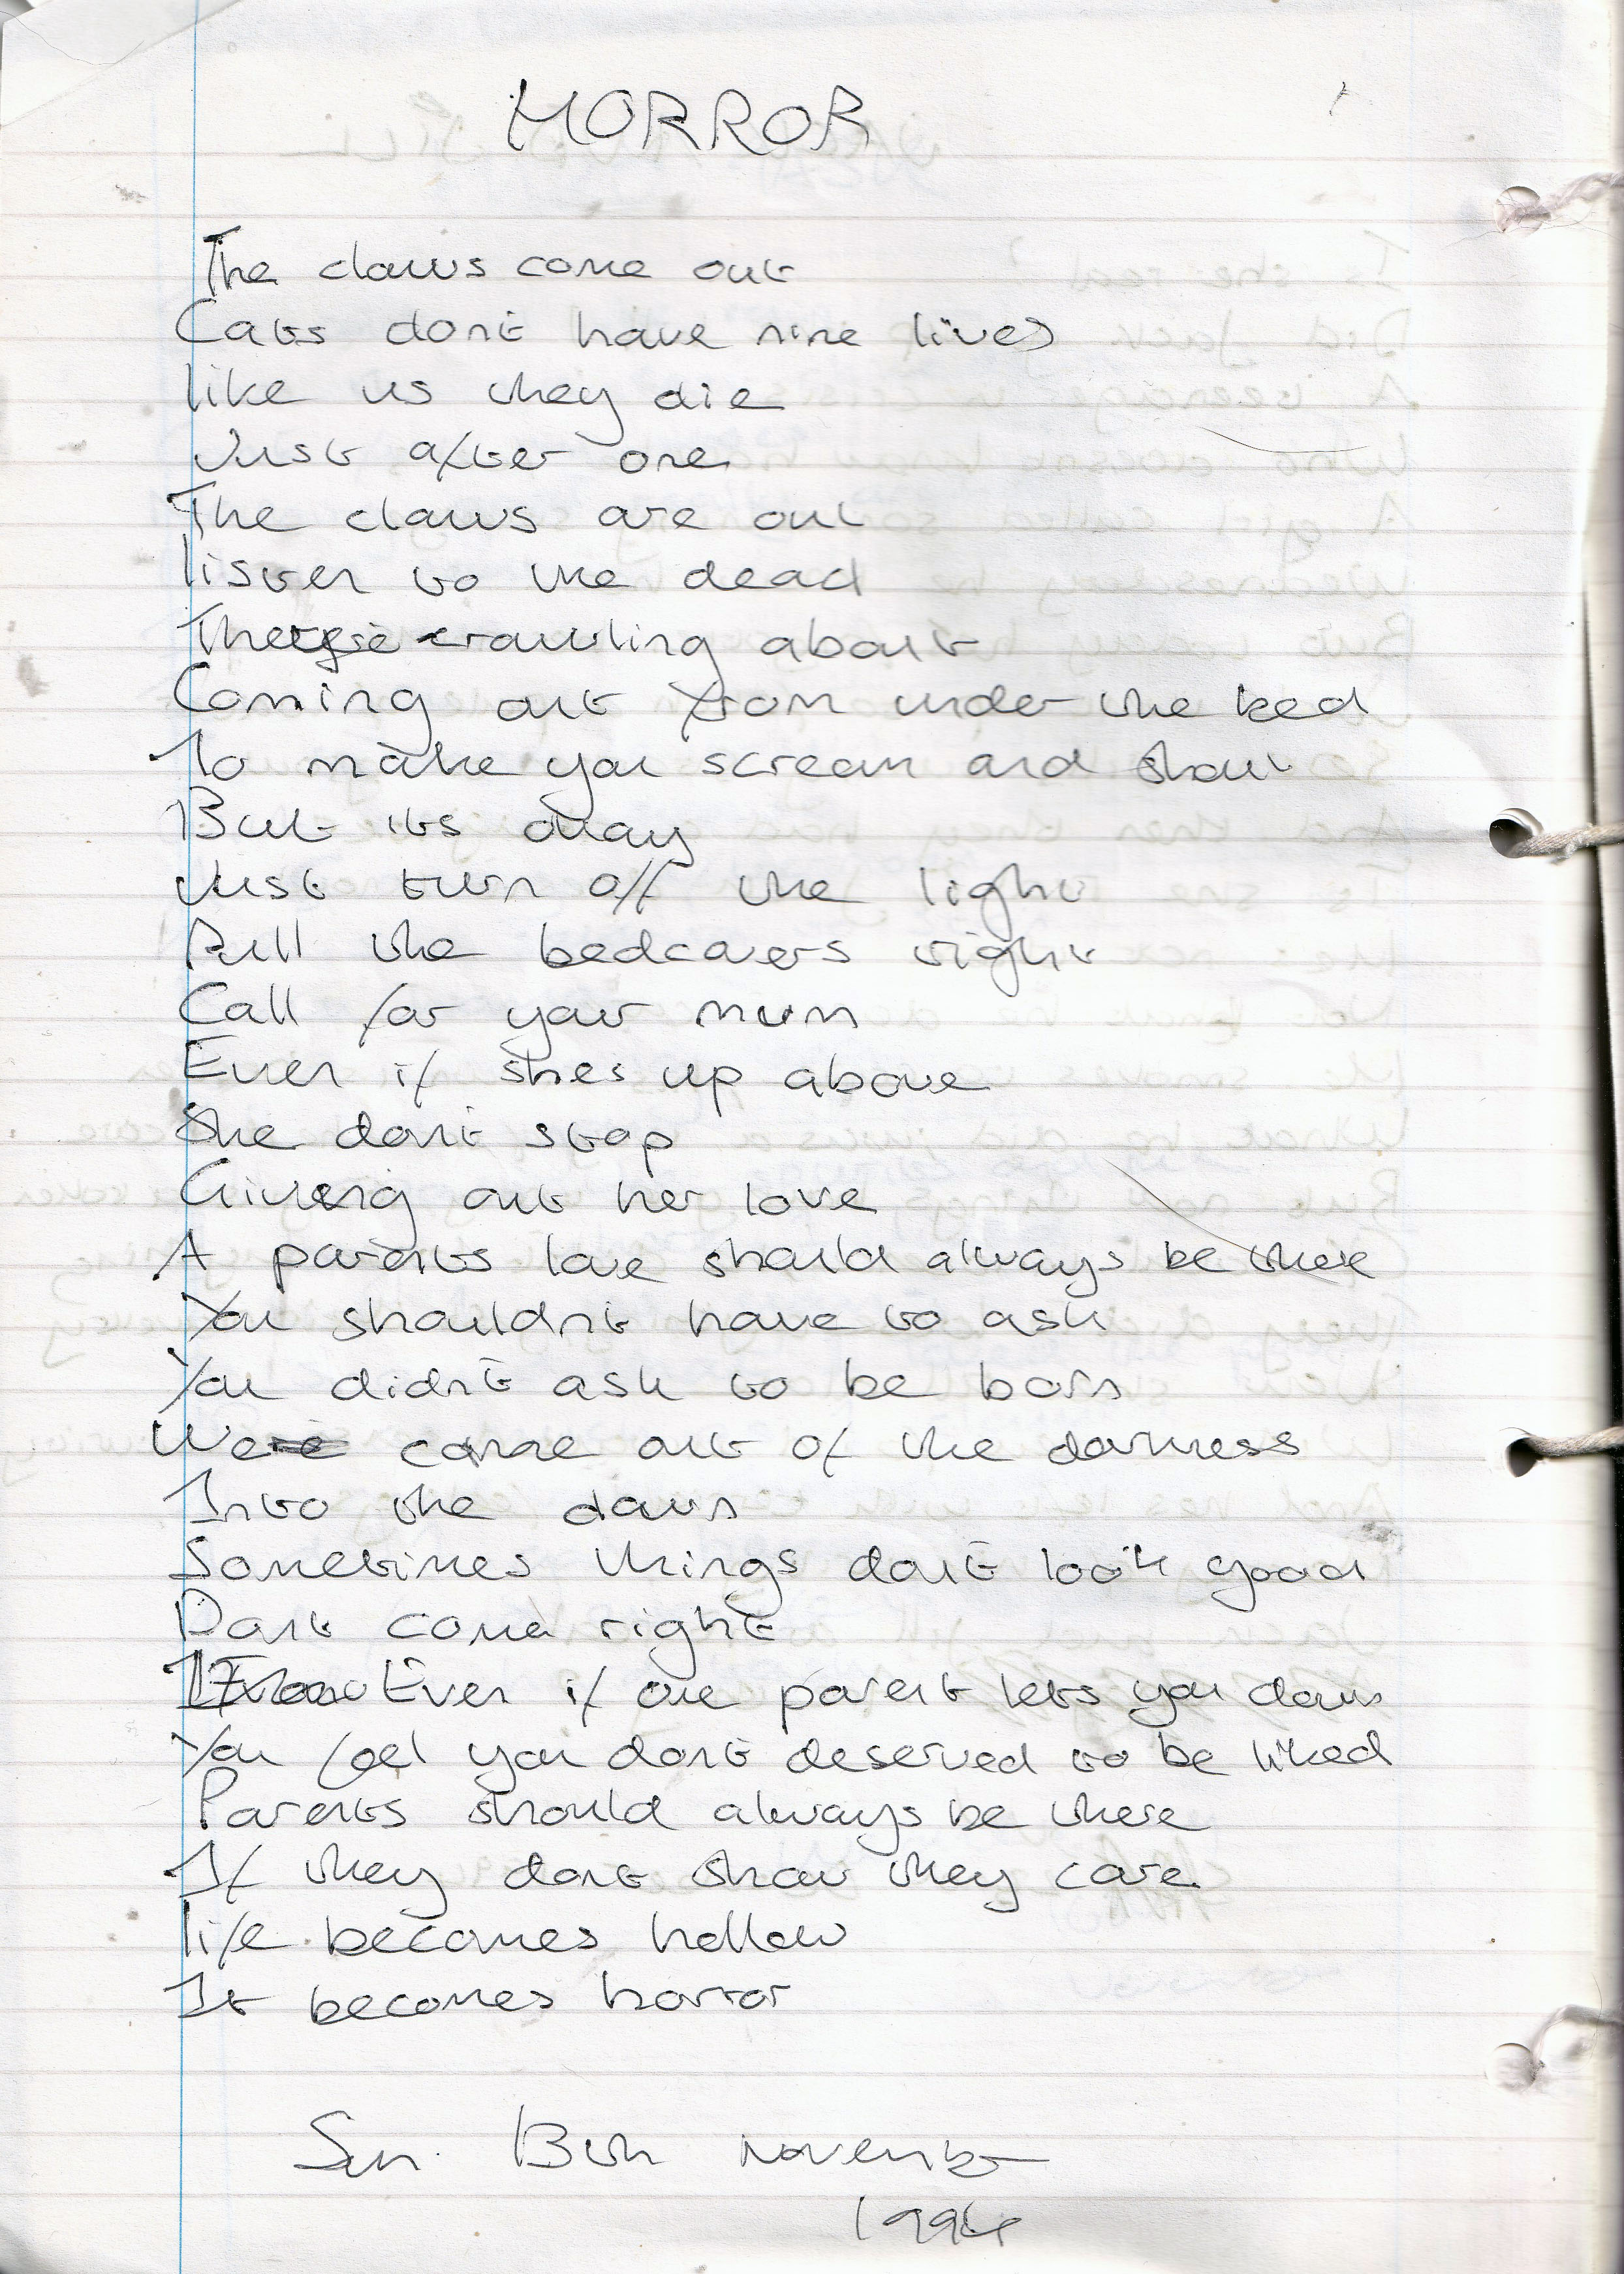 HORROR
The claws come out
Cats dont have nine lives
like us they die
Just after one
The claws are out
listen to the dead
crawling about
Coming out from under the bed
To make you scream and shout
But its okay
Just turn off the light
Pull the bedcovers right
Call for your mum
Even if shes up above
She dont stop
Giving out her love
A parents love should always be there
You shouldnt have to ask
You didnt ask to be born
We come out of the darkness
Into the dawn
Sometimes things dont look good
Dont come right
Even if one parent lets you down
You feel you dont deserved to be liked
Parents should always be there
If they dont show they care
life becomes hollow
It becomes horror
Sun 13th November
1994